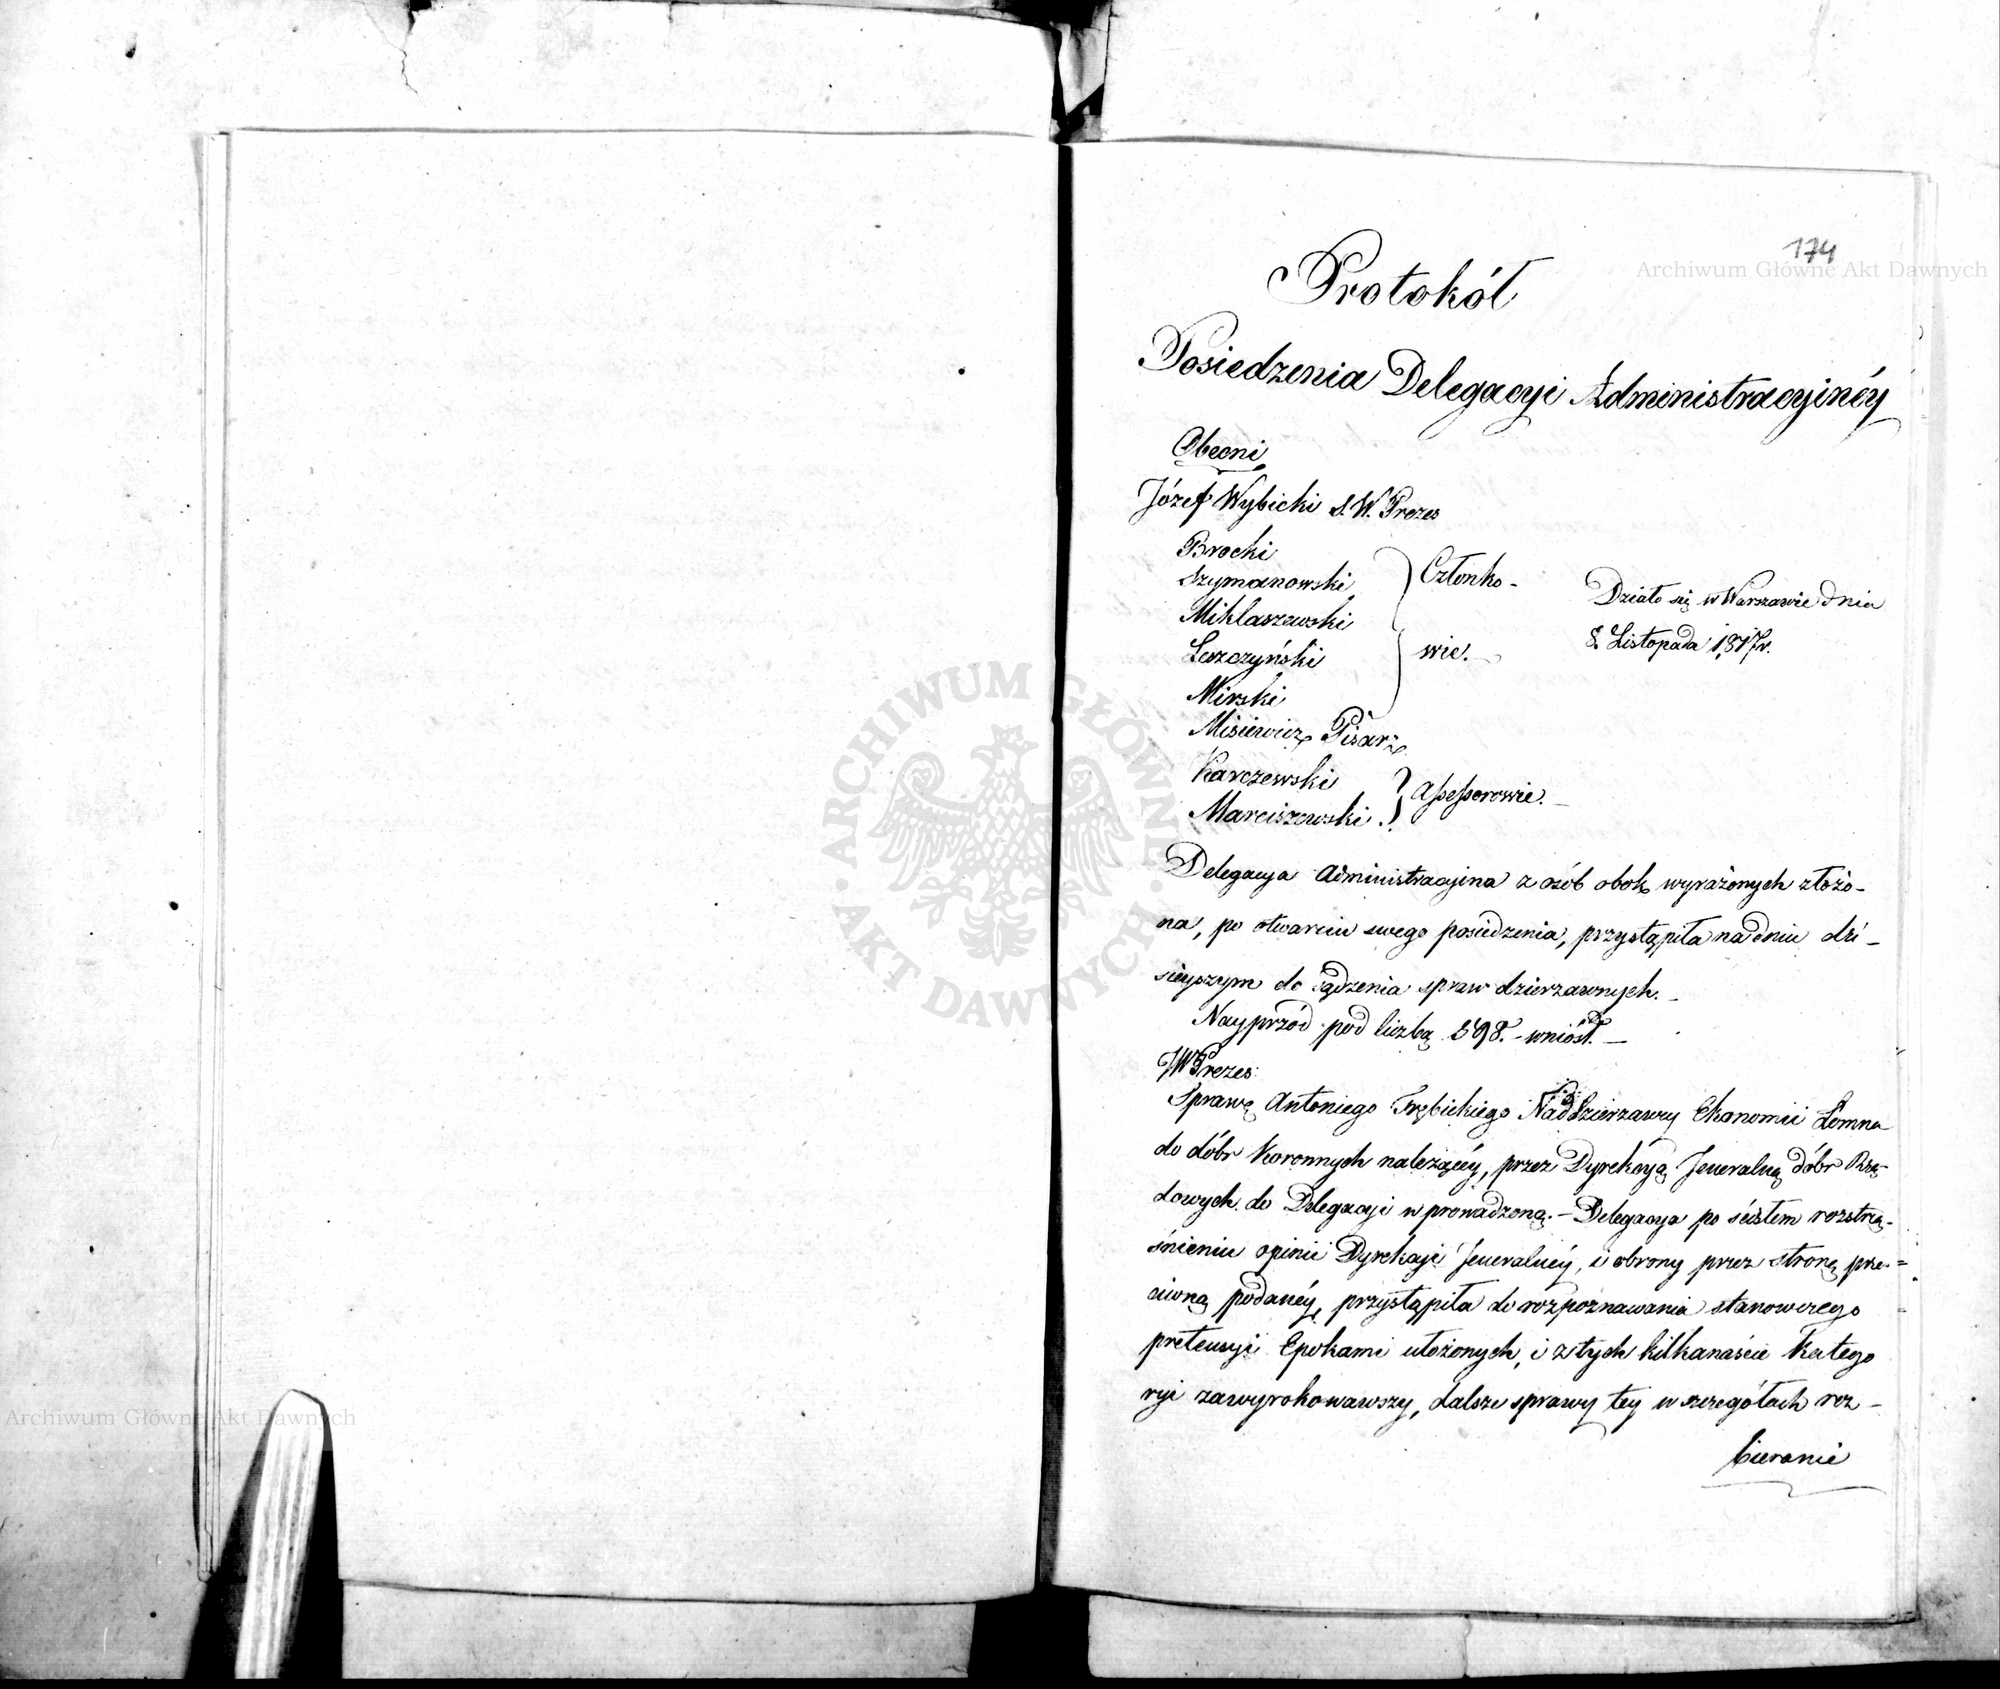 174
Archiwum Główne Akt Dawnych
Protokół
Posiedzenia Delegacyi Administracyinéy
Obecni
Józef Wybicki S.W. Prezes
Brocki
Szymanowski
Członko-
Działo się w Warszawie dnia
Miklaszewski
8. Listopada 1817r.
Leszczyński
wie.
Mirski
Misiewicz Pisarz
Karczewski
Assessorowie.
Marciszewski.
Delegacya Administracyina z osób obok wyrażonych złożo-
na, po otwarciu swego posiedzenia, przystąpiła na dniu dzi-
sieyszym do sądzenia spraw dzierzawnych.
Nayprzód pod liczbą 598. wniósł.
JW Prezes:
Sprawę Antoniego Trębickiego Naddzierzawcy Ekonomii Łomna
do dóbr Koronnych należącéy, przez Dyrekcyą Jeneralną dóbr Rzą-
dowych do Delegacyi wprowadzoną. - Delegacya po ścisłem roztrzą-
śnieniu opinii Dyrekcyi Jeneralnéy, i obrony przez stronę prze-
ciwną podanéy, przystąpiła do rozpoznawania stanowczego
pretensyi Epokami ułożonych, i z tych kilkanaście Katego
ryi zawyrokowawszy, dalsze sprawy tey w szczegółach roz-
bieranie
ARCHIWUM GŁÓWNE AKT DAWNYCH
Archiwum Główne Akt Dawnych